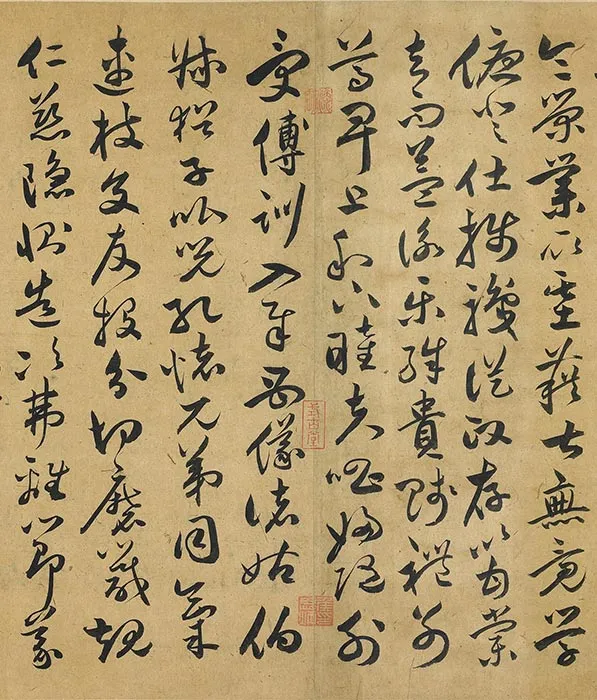 令榮業所基藉甚無竟學
優登仕攝職從政存以甘棠
去而益詠樂殊貴賤禮別
尊卑上和下睦夫唱婦隨外
受傅訓入奉母儀諸姑伯
叔猶子比兒孔懷兄弟同氣
連枝交友投分切磨箴規
仁慈隱惻造次弗離節義
式古堂